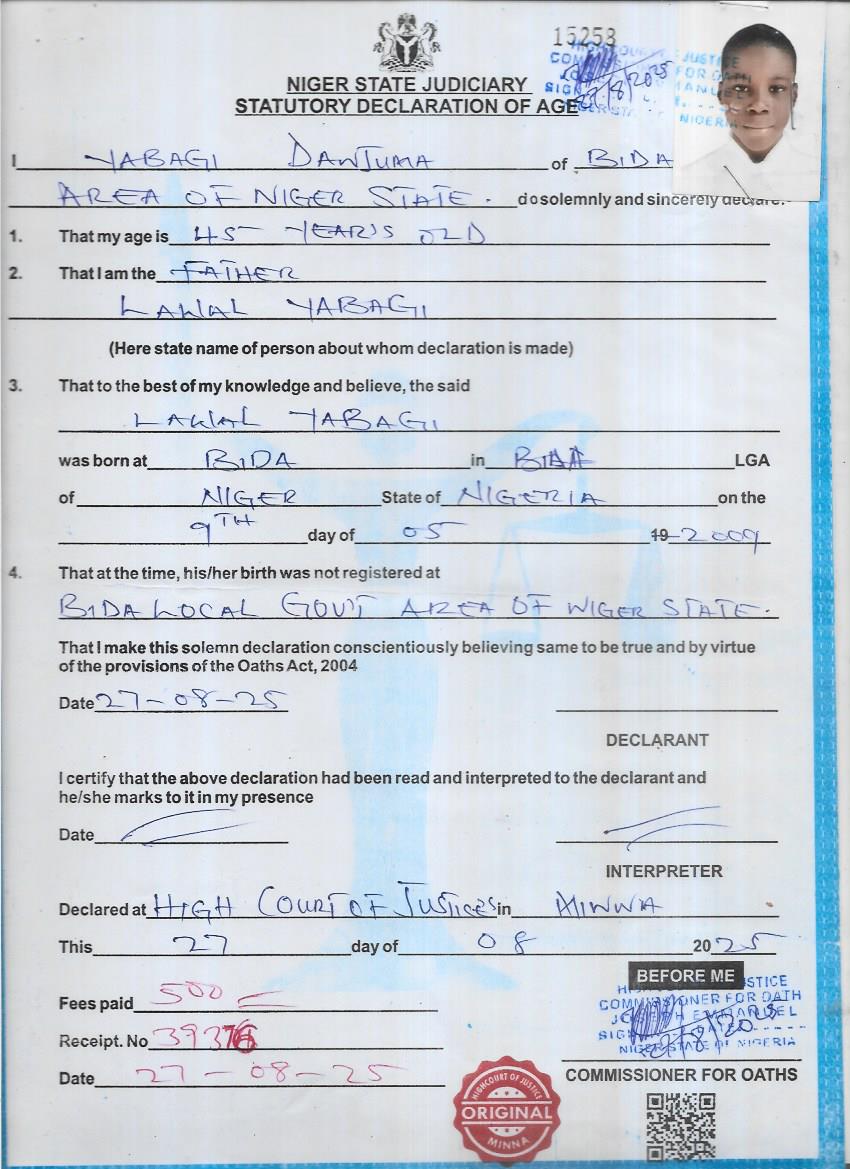 15258
NIGER STATE JUDICIARY
STATUTORY DECLARATION OF AGE
I YABAGI DANJUMA of BIDA
AREA OF NIGER STATE. do solemnly and sincerely declare:
1. That my age is 45 YEAR'S OLD
2. That I am the FATHER
LAWAL YABAGI
(Here state name of person about whom declaration is made)
3. That to the best of my knowledge and believe, the said
LAWAL YABAGI
was born at BIDA in LGA
of NIGER State of NIGERIA on the
9TH day of 05 19 2009
4. That at the time, his/her birth was not registered at
BIDA LOCAL GOV'T AREA OF NIGER STATE.
That I make this solemn declaration conscientiously believing same to be true and by virtue
of the provisions of the Oaths Act, 2004
Date 27-08-25
DECLARANT
I certify that the above declaration had been read and interpreted to the declarant and
he/she marks to it in my presence
Date
INTERPRETER
Declared at HIGH COURT OF JUSTICE in MINNA
This 27 day of 08 2025
BEFORE ME
COMMISSIONER FOR OATH
NIGER STATE OF NIGERIA
Fees paid 500
Receipt. No
Date 27-08-25
COMMISSIONER FOR OATHS
HIGHCOURT OF JUSTICE
ORIGINAL
MINNA